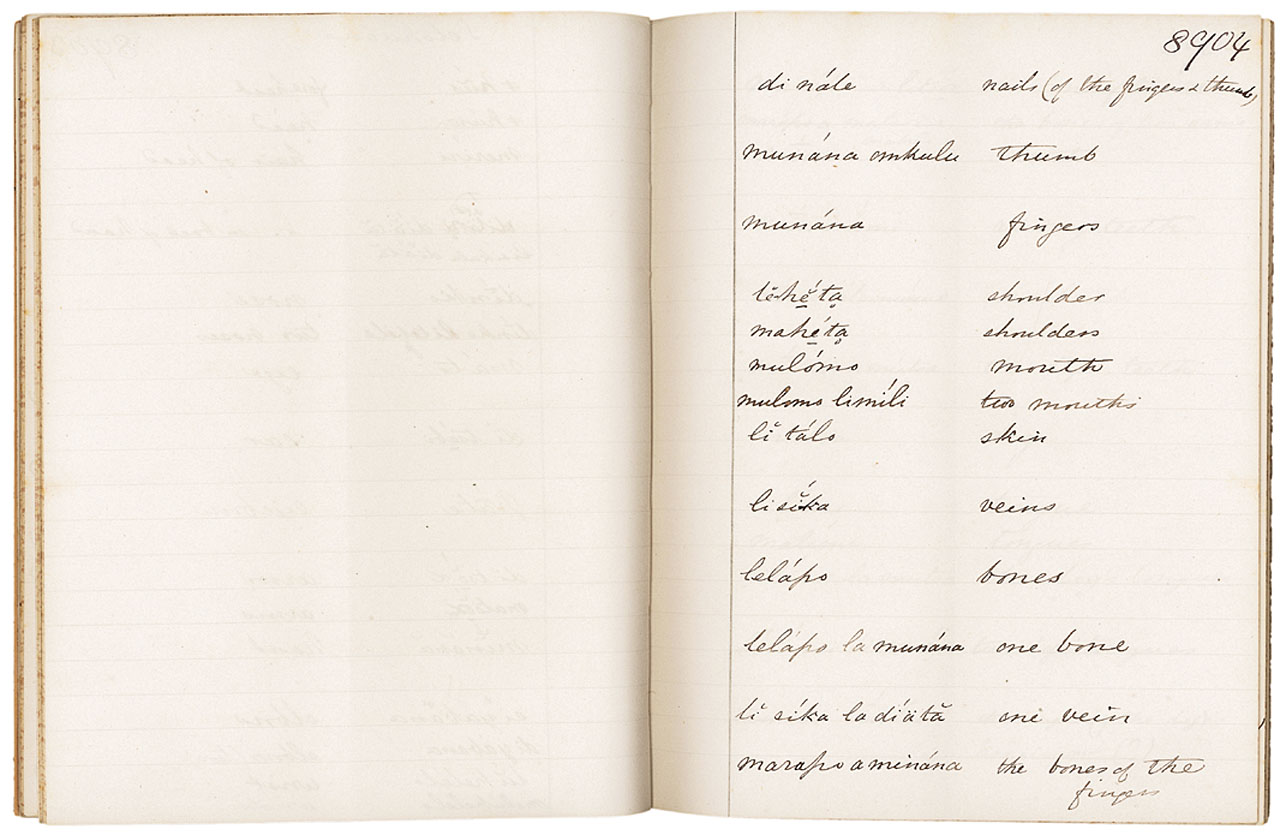 8904
di nále nails (of the fingers & thumb)
munána omkulu thumb
munána fingers
lĕhé̱ta̱ shoulder
mahé̱ta̱ shoulders
mulómo mouth
mulomo limíli two mouths
lĭ tálo skin
li síka veins
lelápo bones
lelápo la munána one bone
lĭ síka la díätă one vein
marapo a minána the bones of the
fingers